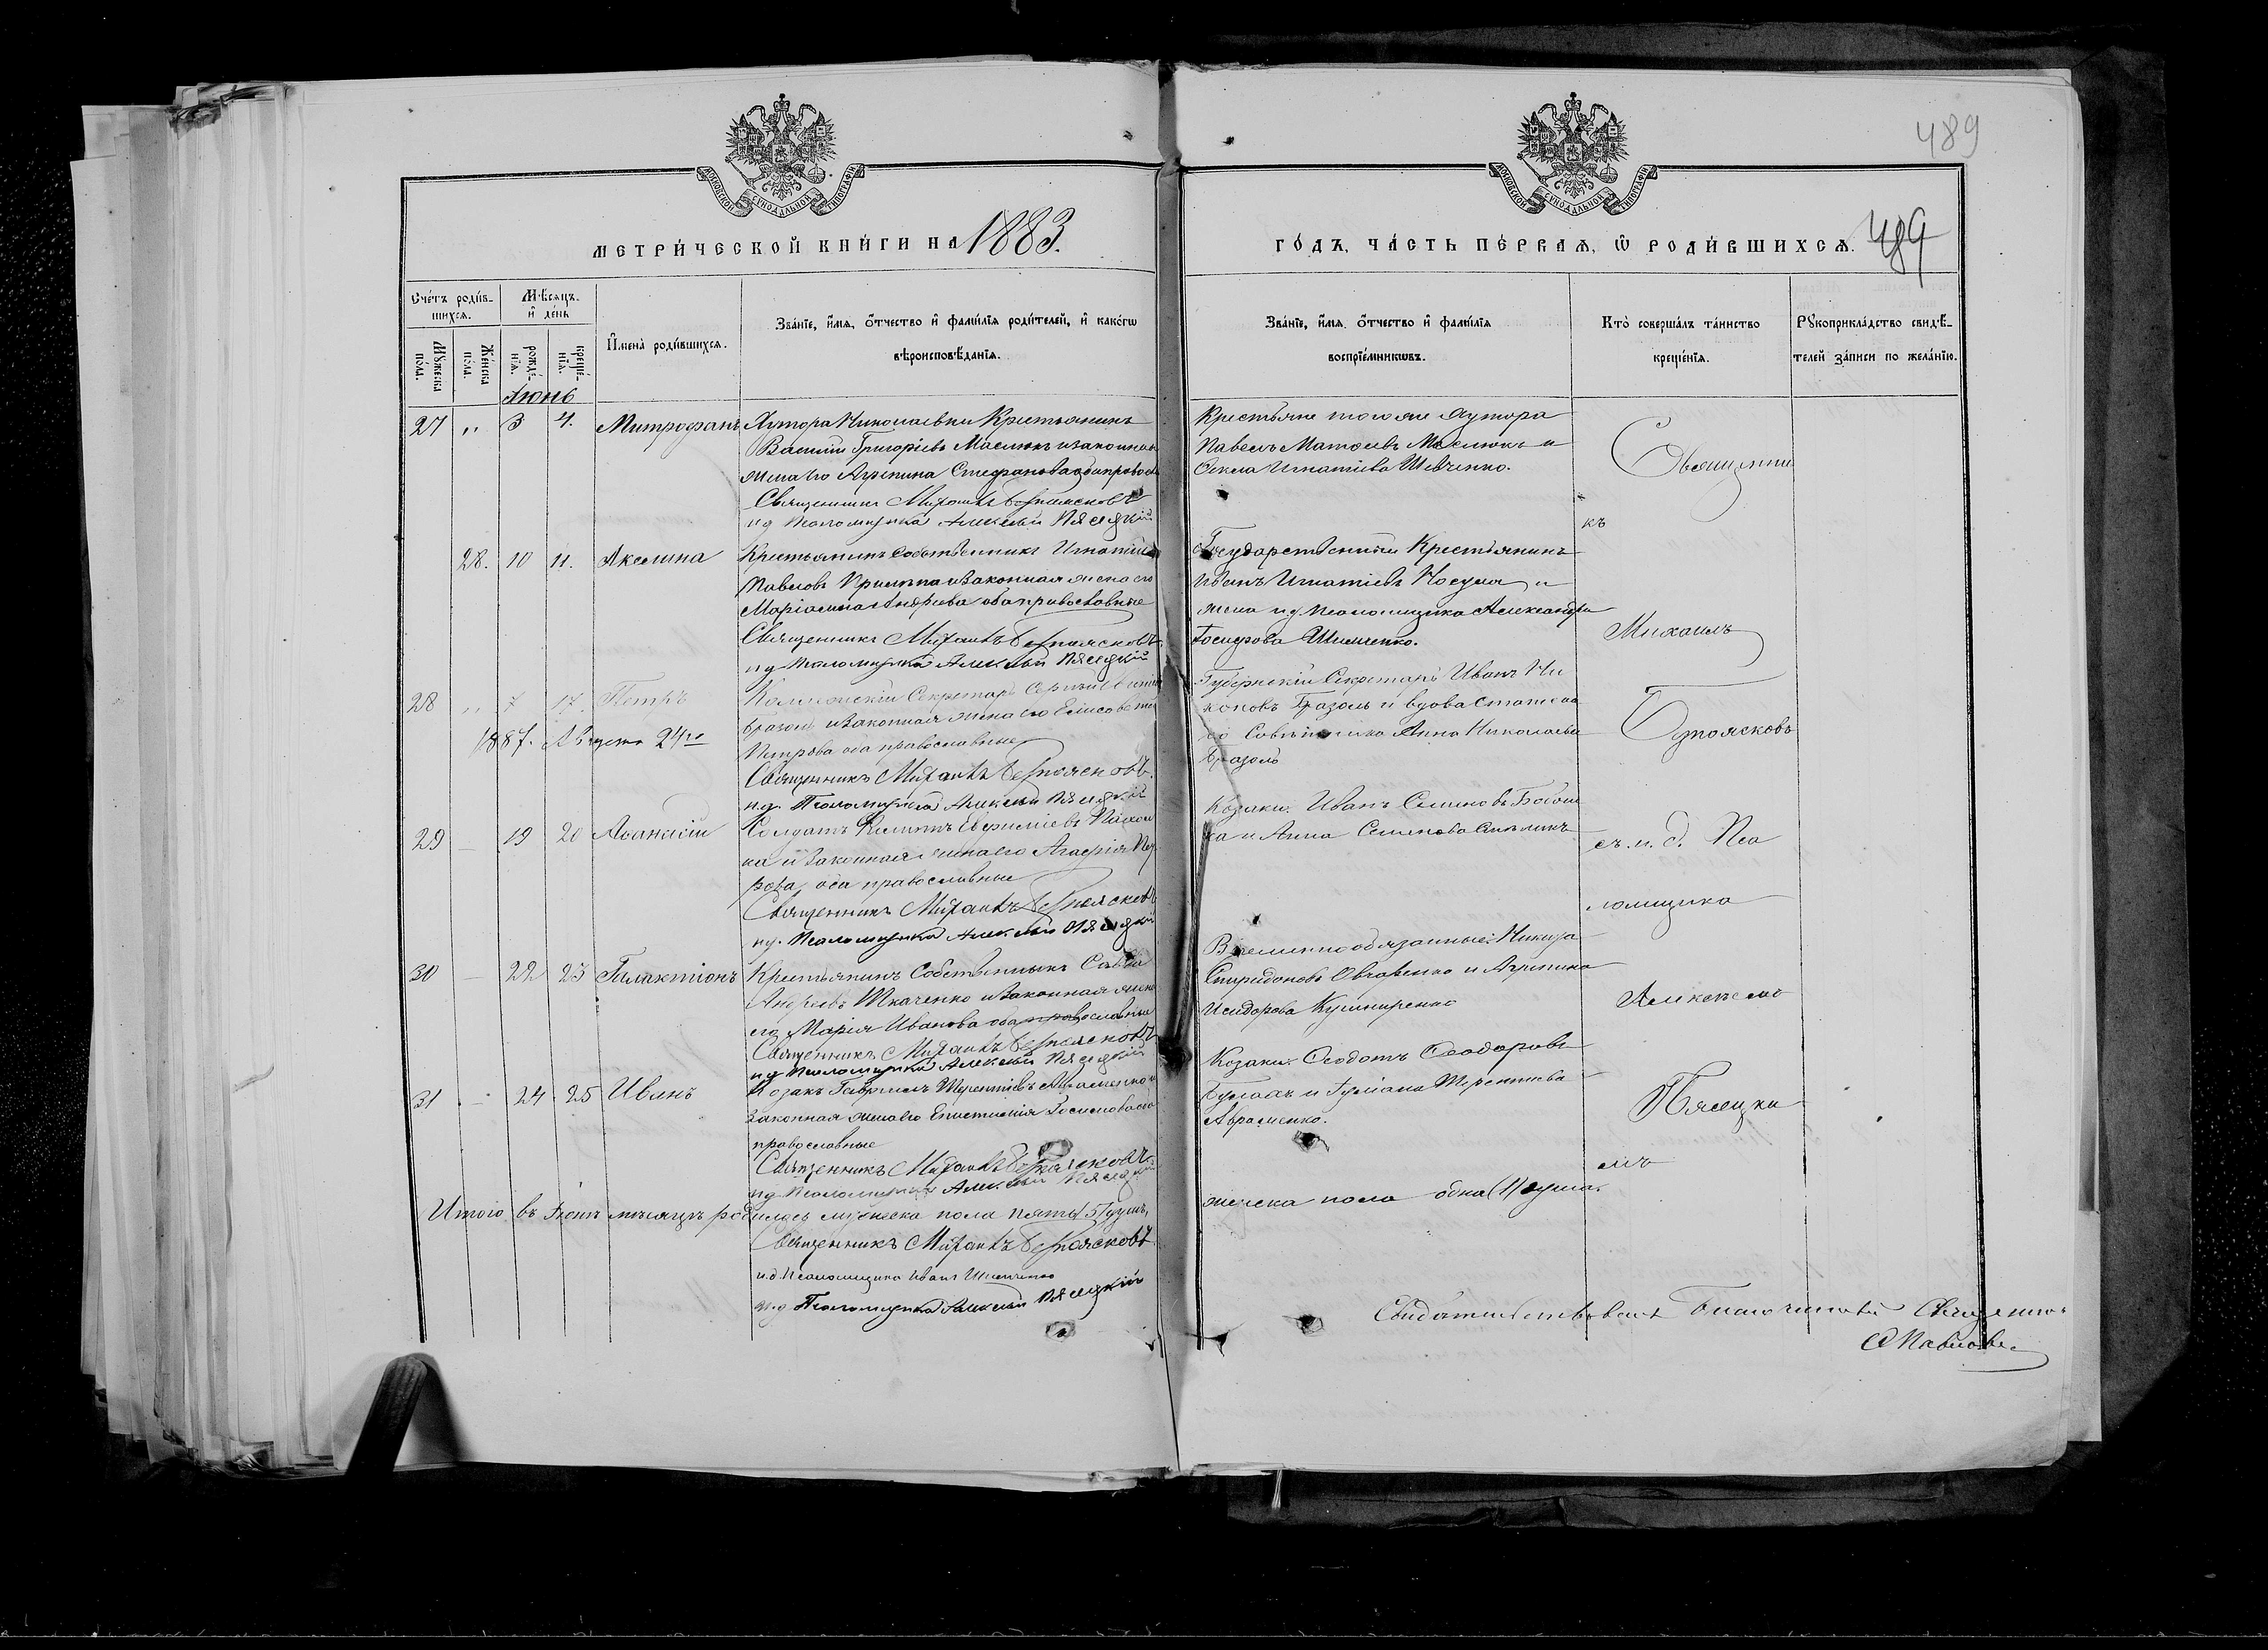 489
МОСКОВСКОЙ СѴНОДАЛЬНОЙ ТИПОГРАФІИ
МОСКОВСКОЙ СѴНОДАЛЬНОЙ ТИПОГРАФІИ
МЕТРИ́ЧЕСКОЙ КНИ́ГИ НА 1883.
ГО́ДЪ, ЧА́СТЬ ПЕ́РВАѦ, Ѡ РОДИ́ВШИХСѦ. 489
Сче́тъ роди́в-
шихсѧ.
Мꙋ́жеска по́ла.
Же́нска по́ла.
Мѣ́сѧцъ и҆ де́нь
рожде́-нїѧ.
креще́-нїѧ.
И҆мена̀ роди́вшихсѧ.
Зва́нїе, и҆́мѧ, ѻ҆́тчество и҆ фамѝлїѧ роди́телей, и҆ како́гѡ
вѣроисповѣ́данїѧ.
Зва́нїе, и҆́мѧ, ѻ҆́тчество и҆ фамѝлїѧ
воспрїе́мникѡвъ.
Кто̀ соверша́лъ та́инство
креще́нїѧ.
Рꙋкоприкла́дство свидѣ́-
телей за́писи по жела́нїю.
Іюнь
27 „ 3 4. Митрофанъ Хутора Николаевки Крестьянинъ
Василій Григоріевъ Маслюкъ и законная
жена его Агрипина Стефанова оба православ
Священникъ Михаилъ Безпоясковъ
и д Псаломщика Алексѣй Пясецкій
Крестьяне того же хутора
Павелъ Матѳеевъ Маслюкъ и
Ѳекла Игнатіева Шевченко.
Священни
къ
28. 10 11. Акелина Крестьянинъ Собственникъ Игнатій
Павловъ и законная жена его
Маріамна Андреева оба православные
Священникъ Михаилъ Безпоясковъ
и д Псаломщика Алексѣй Пясецкій
Государственный Крестьянинъ
Иванъ Игнатіевъ и
жена и д. псаломщика Александра
Іосифова
Михаилъ
28 „ 7 17. Петръ Секретарь Сергѣй
Бразоль и законная жена его Елисавета
Петрова оба православные
1887. Августа 24го
Священникъ Михаилъ Безпоясковъ.
и.д. Псаломщика Алексѣй Пясецкій
Губернскій Секретарь Иванъ Ни
коновъ Бразоль и вдова
Совѣтника Анна Николаева
Бразоль
Безпоясковъ
29 — 19 20 Аѳанасій Солдатъ Евфиміевъ
ка и законная жена его Агафія
рова, оба православные
Священникъ Михаилъ Безпоясковъ
и д. Псаломщика Алексѣй Пясецкій
Козаки: Иванъ Семеновъ
ка и Анна Семенова
съ. и. д. Пса
ломщика
30 — 22 23 Галактіонъ Крестьянинъ Собственникъ Савва
Андреевъ Ткаченко и законная жена
его Марія Иванова оба православные
Священникъ Михаилъ Безпоясковъ
и д Псаломщика Алексѣй Пясецкій
Временнообязанные: Никита
Спиридоновъ и Агрипина
Исидорова Кушниренко
Алексѣемъ
31 — 24 25 Иванъ Козакъ Гавріилъ Терентіевъ Авраменко и
законная жена его Епистимія оба
православные
Священникъ Михаилъ Безпоясковъ
и д Псаломщика Алексѣй Пясецкій
Козаки: Ѳеодотъ Ѳеодоровъ
и Іуліана Терентіева
Авраменко.
Пясецки
мъ
Итого въ Іюнѣ мѣсяцѣ родилось мужеска пола пять (5) душъ,
женска пола одна (1) душа.
Священникъ Михаилъ Безпоясковъ
и.д. Псаломщика Иванъ
и.д. Псаломщика Алексѣй Пясецкій
Свидѣтельствовалъ Благочинный Священникъ
Павловъ